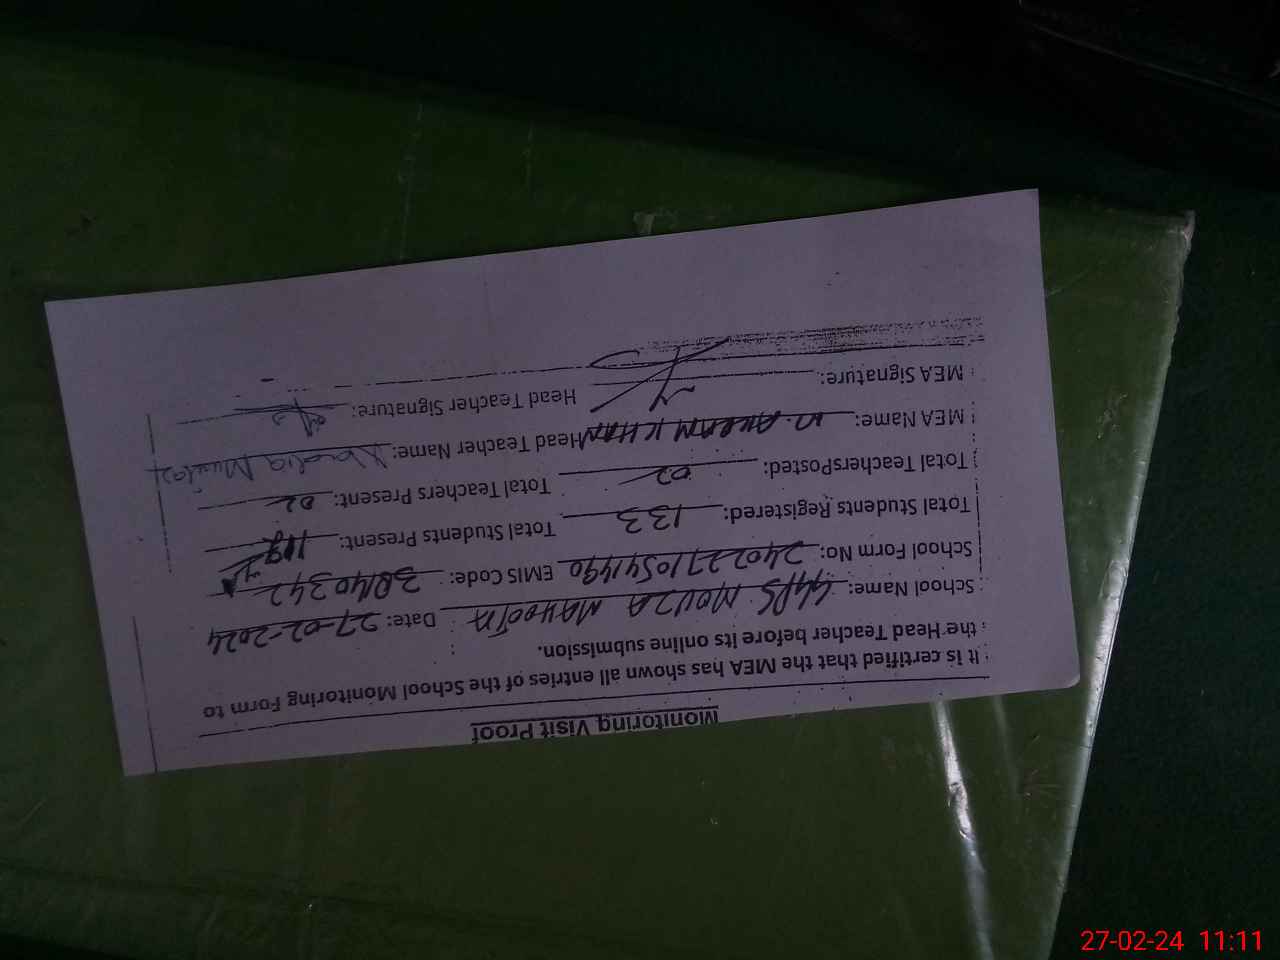 Monitoring Visit Proof
It is certified that the MEA has shown all entries of the School Monitoring Form to
the Head Teacher before its online submission.
School Name: GGPS MOUZA MAHOOTA Date: 27-02-2024
School Form No: 240227105414490 EMIS Code: 38140342
Total Students Registered: 133 Total Students Present:
Total TeachersPosted: 02 Total Teachers Present: 02
MEA Name: M. AKRAM KHAN Head Teacher Name:
MEA Signature: Head Teacher Signature:
27-02-24 11:11